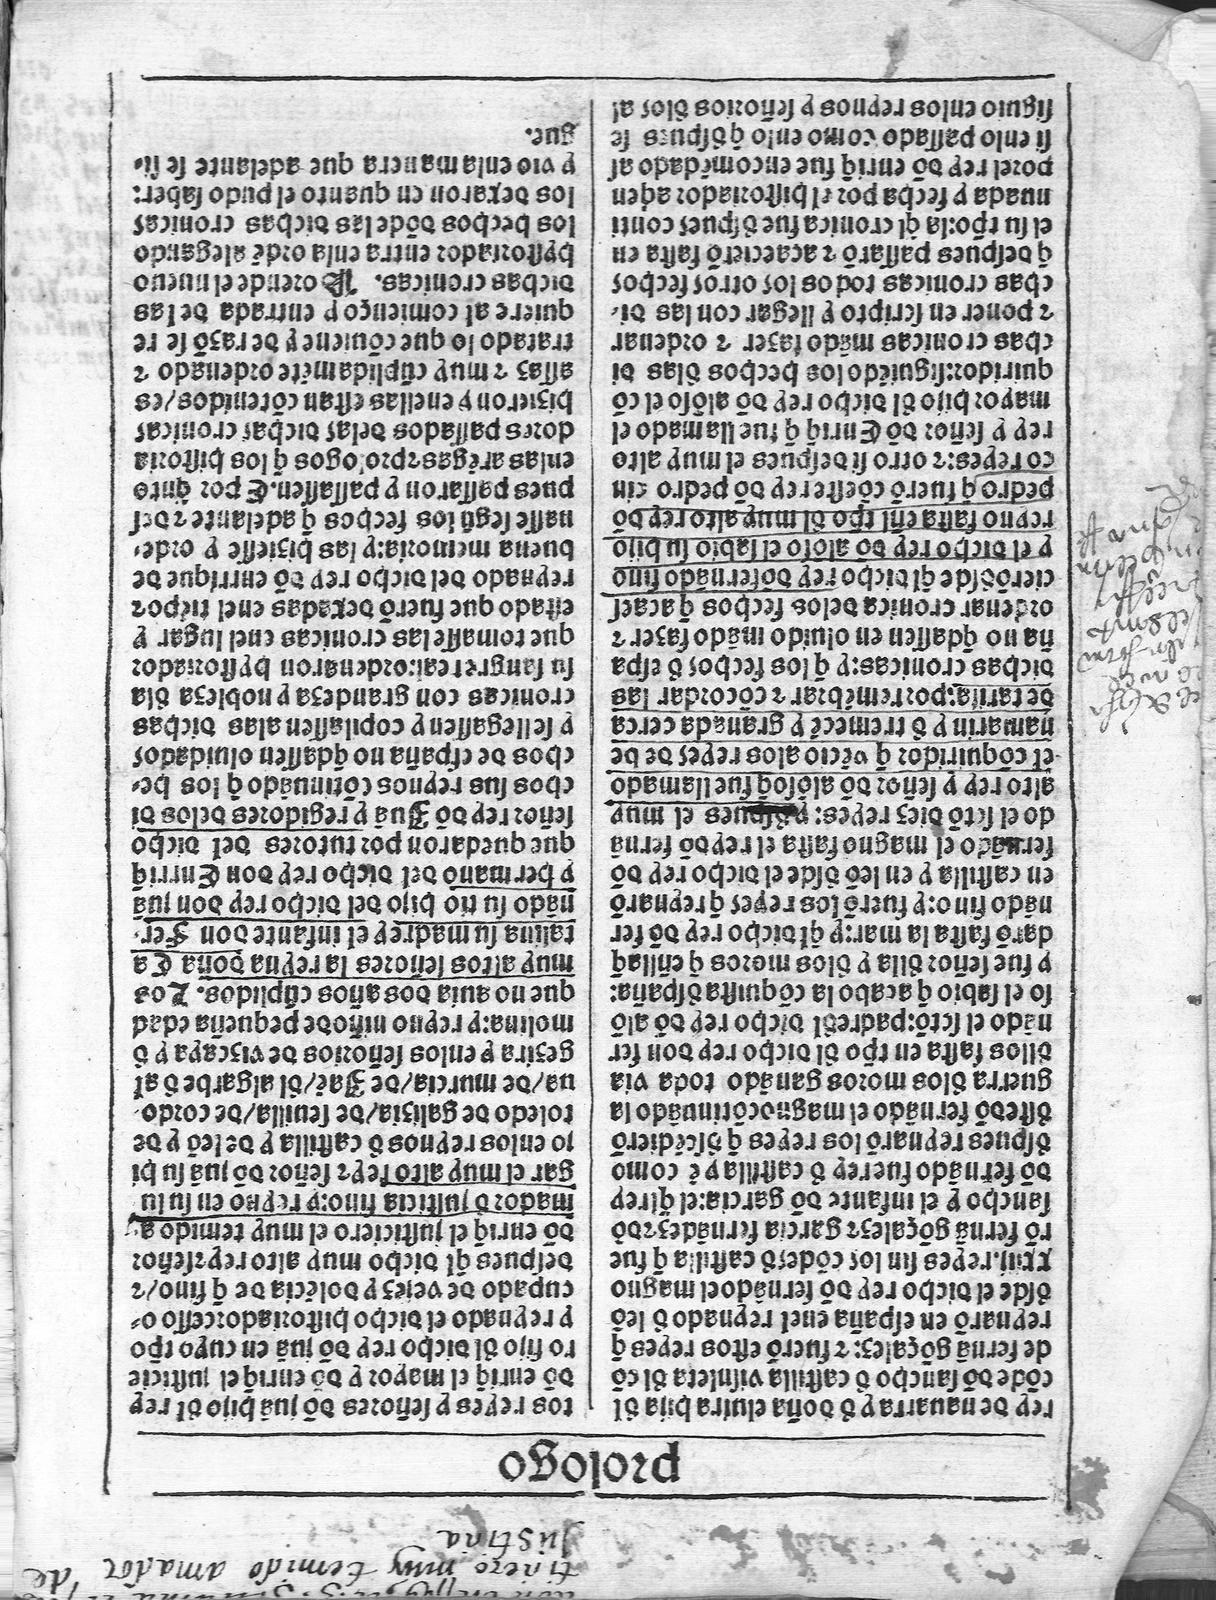 muy temido amador de
Prologo
rey de nauarra y d̄ doña eluira hija dl
cōde dō sancho d̄ castilla visnieta dl cō
de fernā gōçalez: ⁊ fuerō estos reyes q̄
reynarō en españa enel reynado d̄ leō
dsde el dicho rey dō fernādo el magno
xxiij. reyes sin los cōdes d̄ castilla q̄ fue
rō fernā gōçalez ⁊ garcia fernādez ⁊ dō
sancho y el infante dō garcia: el q̄l rey
dō fernādo fue rey d̄ castilla y ē como
dspues reynarō los reyes q̄ dscēdierō
dste dō fernādo el magno cōtinuādo la
guerra dlos moros ganādo toda via
dllos fasta en tp̄o dl dicho rey don fer
nādo el sctō: padre dl dicho rey dō alō
so el sabio q̄ acabo la cōquista dspaña:
y fue señor dlla y dlos moros q̄ enllaq̄
darō fasta la mar: y q̄l dicho rey dō fer
nādo fino: y fuerō los reyes q̄ reynarō
en castilla y en leō dsde el dicho rey dō
fernādo el magno fasta el rey dō fernā
do el sctō diez reyes: y dspues el muy
alto rey y señor dō alōso q̄ fue llamado
el cōquiridor q̄ vēcio alos reyes de be
namarin y d̄ tremecē y granada cerca
de tarifa: por remēbrar ⁊ cōcordar las
dichas cronicas: y q̄ los fechos d̄ espa
ña no q̄dassen en oluido mādo fazer ⁊
ordenar cronica delos fechos q̄ acaes
cierō dsde q̄l dicho rey dō fernādo fino
y el dicho rey dō alōso el sabio su hijo
reyno fasta enl tp̄o dl muy alto rey dō
pedro q̄ fuerō cōeste rey dō pedro cin
co reyes: ⁊ otro si despues el muy alto
rey y señor dō Enriq̄ q̄ fue llamado el
mayor hijo dl dicho rey dō alōso el cō
quiridor: siguiēdo los hechos dlas di
chas cronicas mādo fazer ⁊ ordenar
⁊ poner en scripto y llegar con las di-
chas cronicas todos los otros fechos
q̄ despues passarō ⁊ acaecierō fasta en
el su tp̄o: la q̄l cronica fue dspues conti
nuada y fecha por el historiador aqen
por el rey dō enriq̄ fue encomēdado assi
si enlo passado como enlo q̄ dspues se
siguio enlos reynos y señorios dlos al
tos reyes y señores dō juā hijo dl rey
dō enriq̄ el mayor y dō enriq̄ el justicie
ro fijo dl dicho rey dō juā en cuyo tp̄o
y reynado el dicho historiador cesso o-
cupado de vejez y dolēcia de q̄ fino/⁊
despues q̄l dicho muy alto rey ⁊ señor
dō enriq̄ el justiciero el muy temido a-
mador d̄ justicia fino: y reyno en su lu
gar el muy alto rey ⁊ señor dō juā su hi
jo enlos reynos d̄ castilla y de leō y de
toledo de galizia/de seuilla/de cordo-
ua/de murcia/de Jaē/dl algarbe d̄ al
gezira y enlos señorios de vizcaya y d̄
molina: y reyno niño de pequeña edad
que no auia dos años cūplidos. Los
muy altos señores la reyna doña Ca
talina su madre y el infante don Fer-
nādo su tio hijo del dicho rey don juā
y hermano del dicho rey don Enrriq̄
que quedaron por tutores del dicho
señor rey dō Juā y regidores delos di
chos sus reynos cōtinuādo q̄ los he-
chos de españa no q̄dassen oluidados
y se llegassen y copilassen alas dichas
cronicas con grandeza y nobleza dla
su sangre real: ordenaron hystoriador
que tomasse las cronicas enel lugar y
estado que fuerō dexadas enel tiēpo ⁊
reynado del dicho rey dō enrrique de
buena memoria: y las hiziesse y orde-
nasse segū los fechos q̄ adelante ⁊ des
pues passaron y passassen. E por q̄nto
enlas arēgas ⁊ prologos q̄ los historia
dores passados delas dichas cronicas
hizieron y enellas estan cōtenidos/es
assaz ⁊ muy cūplidamēte ordenado ⁊
tratado lo que cōuiene y de razō se re
quiere al comienço y entrada de las
dichas cronicas. A orende el nueuo
hystoriador entra enla ordē alegando
los hechos dōde las dichas cronicas
los dexaron en quanto el pudo saber:
y vio enla manera que adelante se si-
gue.